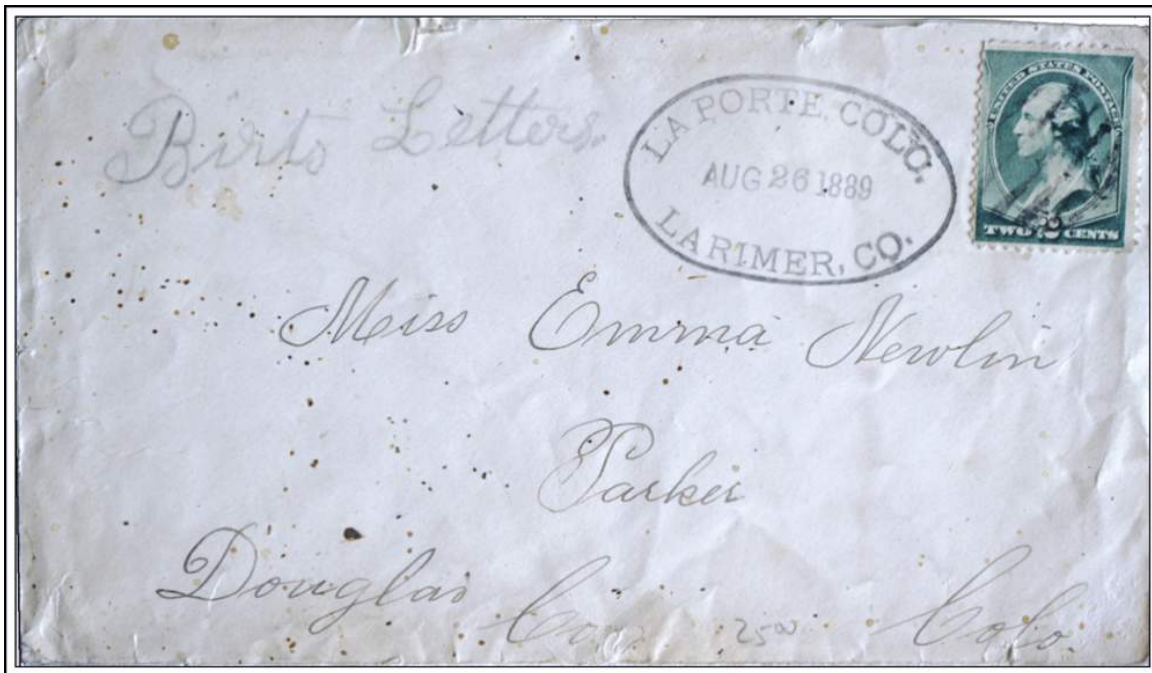 Birts Letters.
LA PORTE, COLO.
AUG 26 1889
LARIMER, CO.
UNITED STATES POSTAGE
TWO 2 CENTS
Miss Emma Newlin
Parker
Douglas Co. Colo.
2500